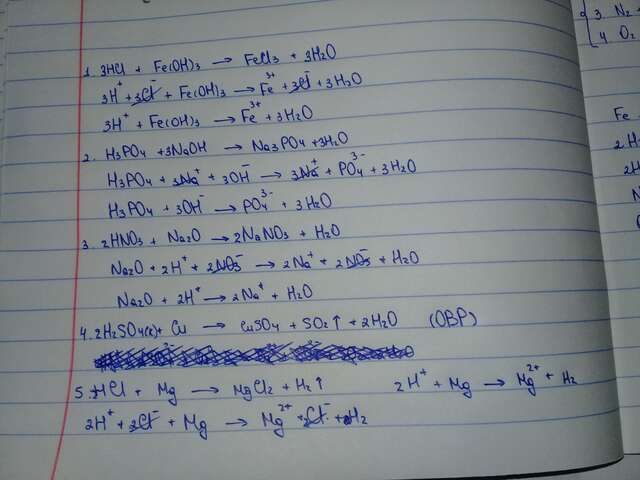 1. 3HCl + Fe(OH)₃ → FeCl₃ + 3H₂O
3H⁺ + 3Cl⁻ + Fe(OH)₃ → Fe³⁺ + 3Cl⁻ + 3H₂O
3H⁺ + Fe(OH)₃ → Fe³⁺ + 3H₂O
2. H₃PO₄ + 3NaOH → Na₃PO₄ + 3H₂O
H₃PO₄ + 3Na⁺ + 3OH⁻ → 3Na⁺ + PO₄³⁻ + 3H₂O
H₃PO₄ + 3OH⁻ → PO₄³⁻ + 3H₂O
3. 2HNO₃ + Na₂O → 2NaNO₃ + H₂O
Na₂O + 2H⁺ + 2NO₃⁻ → 2Na⁺ + 2NO₃⁻ + H₂O
Na₂O + 2H⁺ → 2Na⁺ + H₂O
4. 2H₂SO₄(к) + Cu → CuSO₄ + SO₂↑ + 2H₂O (ОВР)
5. HCl + Mg → MgCl₂ + H₂↑ 2H⁺ + Mg → Mg²⁺ + H₂
2H⁺ + 2Cl⁻ + Mg → Mg²⁺ + 2Cl⁻ + H₂
3 N₂
4 O₂
Fe
2H